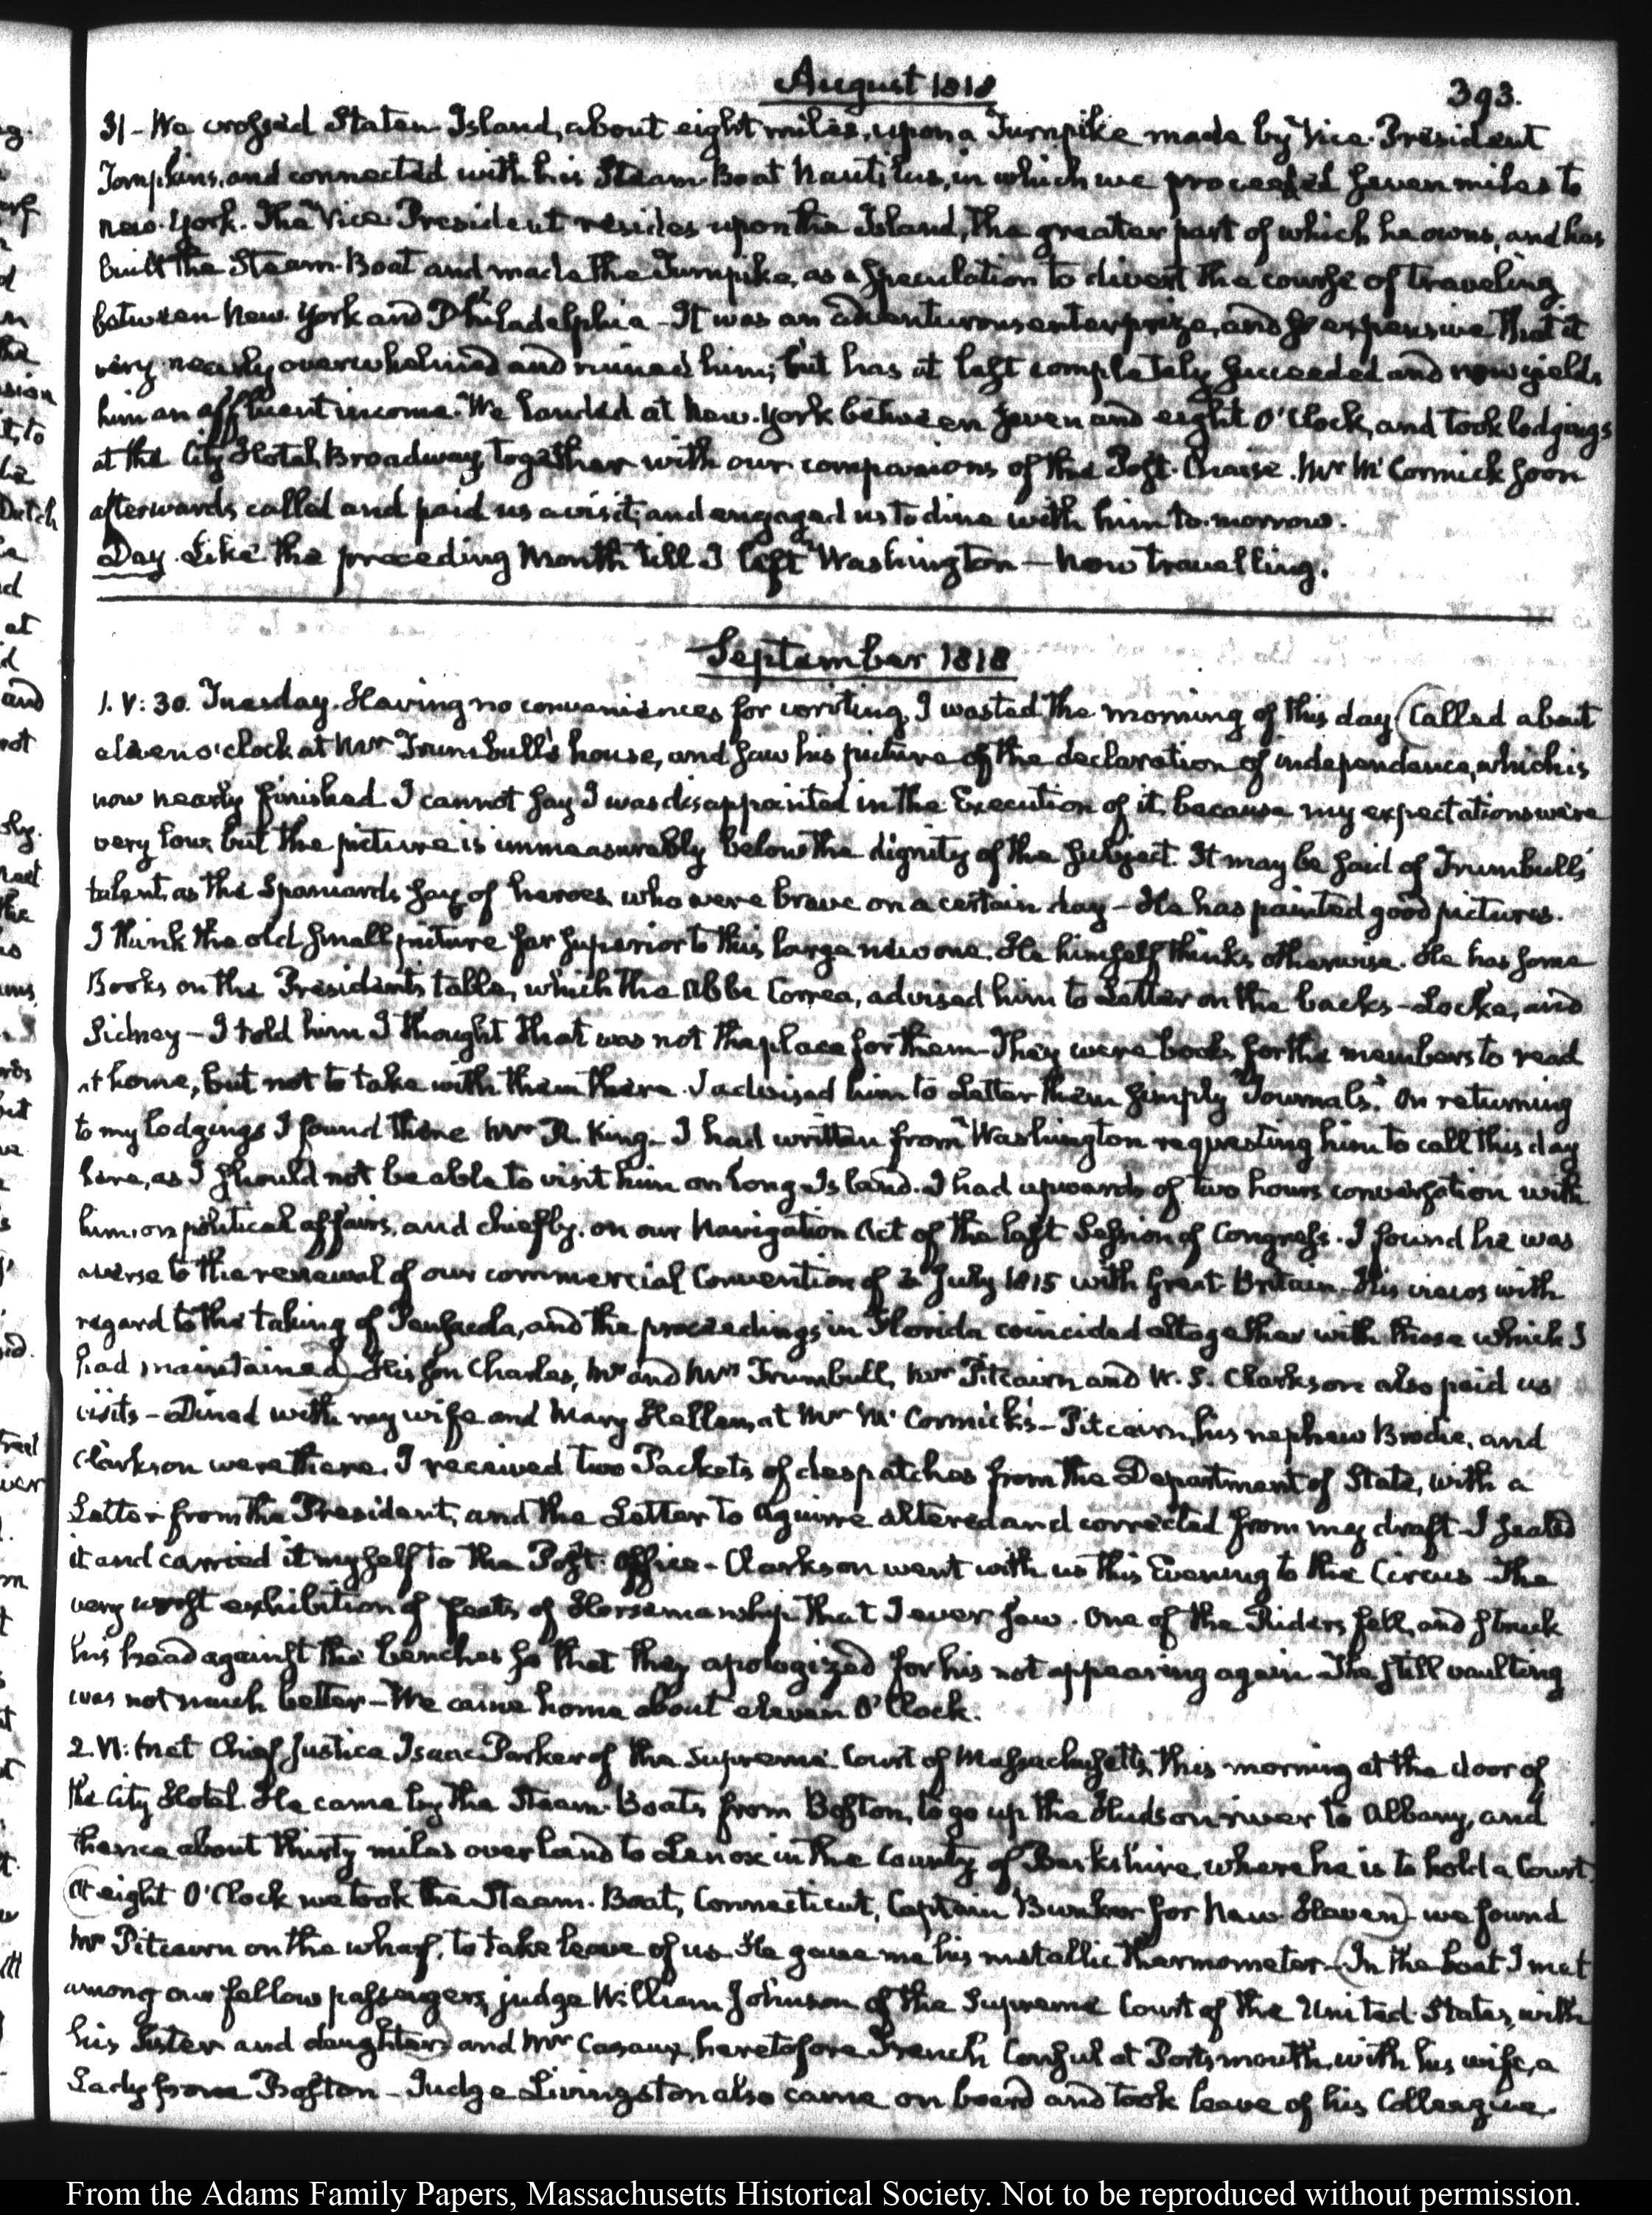 August 1818
393.
31 - We crossed Staten Island, about eight miles, upon a Turnpike made by Vice-President
Tompkins, and connected with his Steam-Boat Nautilus, in which we proceeded seven miles to
New-York. The Vice President resides upon the Island, the greater part of which he owns, and has
built the Steam-Boat and made the Turnpike, as a speculation to divert the course of traveling
between New-York and Philadelphia - It was an adventurous enterprize, and so expensive that it
very nearly overwhelmed and ruined him; but has at last completely succeeded and now yields
him an affluent income. We landed at New-York between seven and eight O'Clock, and took lodgings
at the City Hotel, Broadway, together with our companions of the Post-Chaise. Mr McCormick soon
afterwards called and paid us a visit; and engaged us to dine with him to-morrow.
Day. Like the preceding Month till I left Washington - Now travelling.
September 1818
1. V: 30. Tuesday. Having no conveniences for writing, I wasted the morning of this day (Called about
eleven o'clock at Mr Trumbull's house, and saw his picture of the declaration of independence, which is
now nearly finished. I cannot say I was disappointed in the Execution of it, because my expectations were
very low; but the picture is immeasurably below the dignity of the subject. It may be said of Trumbull's
talent, as the Spaniards say of heroes who were brave on a certain day - He has painted good pictures.
I think the old small picture far superior to this large new one. He himself thinks otherwise. He has some
Books on the President's table, which the Abbé Correa, advised him to Letter on the backs - Locke, and
Sidney - I told him I thought that was not the place for them - They were books for the members to read
at home, but not to take with them there. I advised him to Letter them simply "Journals." On returning
to my lodgings I found there Mr R. King - I had written from Washington requesting him to call this day
here, as I should not be able to visit him on Long Island. I had upwards of two hours conversation with
him, on political affairs, and chiefly, on our Navigation Act of the last Session of Congress. I found he was
averse to the renewal of our commercial Convention of 3 July 1815 with Great-Britain. His views with
regard to the taking of Pensacola, and the proceedings in Florida coincided altogether with those which I
had maintained) His son Charles, Mr and Mrs Trumbull, Mr Pitcairn and W. S. Clarkson also paid us
visits - Dined with my wife and Mary Hellen, at Mr McCormick's - Pitcairn, his nephew Brodie, and
Clarkson were there. I received two Packets of despatches from the Department of State, with a
Letter from the President; and the Letter to Aguirre altered and corrected from my draft - I sealed
it and carried it myself to the Post-Office - Clarkson went with us this Evening to the Circus - The
very worst exhibition of feats of Horsemanship that I ever saw. One of the Riders fell, and struck
his head against the benches so that they apologized for his not appearing again. The still vaulting
was not much better - We came home about eleven O'Clock.
2. VI: I met Chief Justice Isaac Parker of the Supreme Court of Massachusetts, this morning at the door of
the City Hotel. He came by the Steam-Boats from Boston, to go up the Hudson river to Albany, and
thence about thirty miles over land to Lenox in the County of Berkshire, where he is to hold a Court.
(At eight O'Clock we took the Steam-Boat, Connecticut, Captain Bunker for New-Haven) - we found
Mr Pitcairn on the wharf, to take leave of us. He gave me his metallic thermometer - (In the boat I met
among our fellow passengers, judge William Johnson of the Supreme Court of the United States, with
his Sister and daughter) and Mr Cazaux, heretofore French Consul at Portsmouth, with his wife, a
Lady from Boston - Judge Livingston also came on board and took leave of his Colleague.
From the Adams Family Papers, Massachusetts Historical Society. Not to be reproduced without permission.